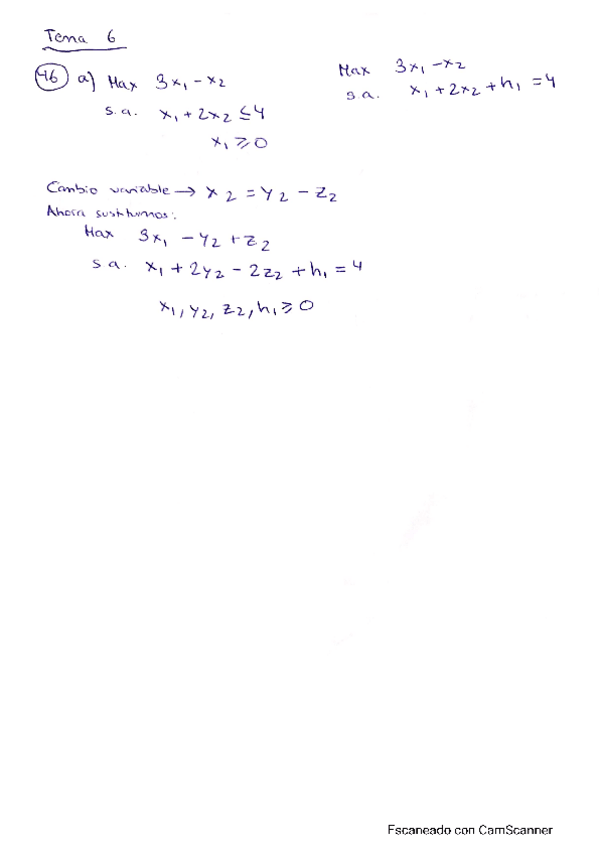 Tema 6
46 a) Max 3x₁ - x₂
s.a. x₁ + 2x₂ ≤ 4
x₁ ≥ 0
Max 3x₁ - x₂
s.a. x₁ + 2x₂ + h₁ = 4
Cambio variable → x₂ = y₂ - z₂
Ahora sustituimos:
Max 3x₁ - y₂ + z₂
s.a. x₁ + 2y₂ - 2z₂ + h₁ = 4
x₁, y₂, z₂, h₁ ≥ 0
Escaneado con CamScanner